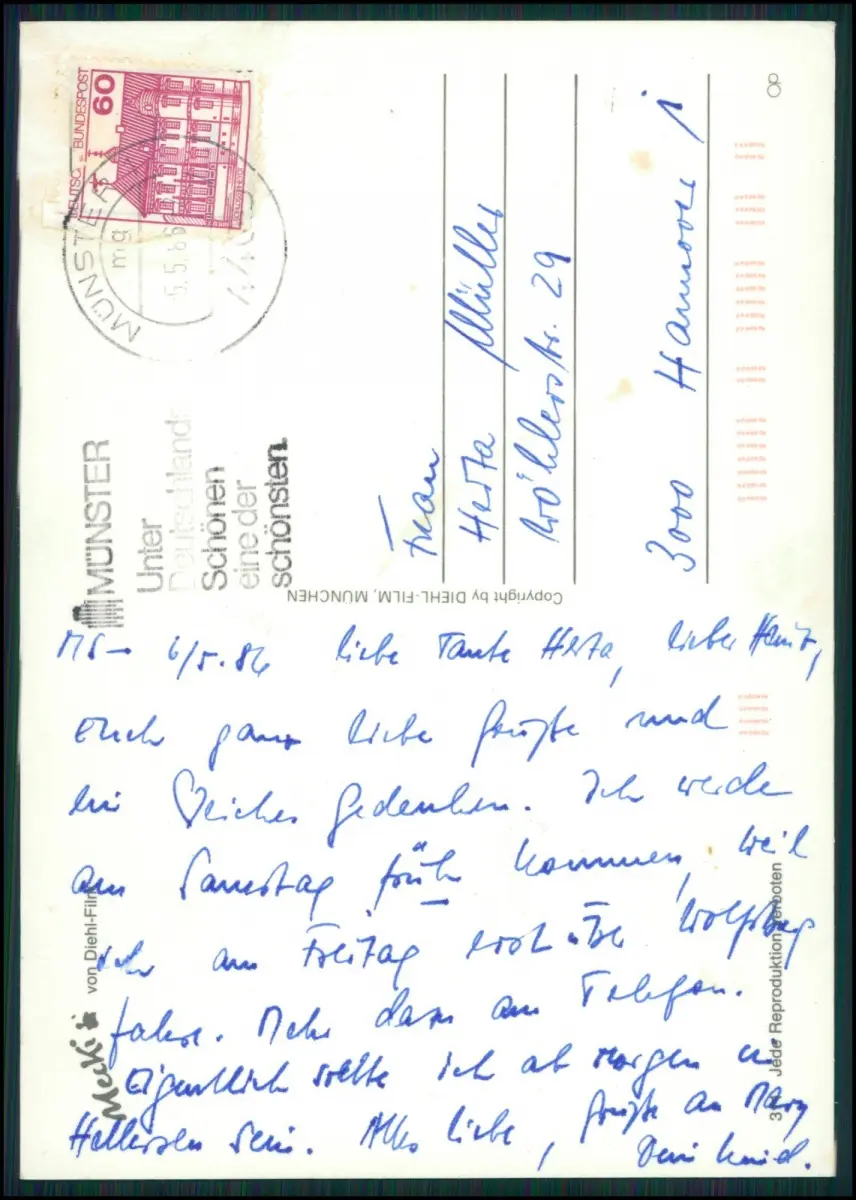 DEUTSCHE BUNDESPOST
60
MÜNSTER
mg
MÜNSTER
Unter
Deutschlands
Schönen
eine der
schönsten.
Frau
Herta Müller
Wöhlerstr. 29
3000 Hannover 1
Copyright by DIEHL-FILM, MÜNCHEN
MS- 6/5.86 liebe Tante Herta, lieber
Euch ganz liebe Grüße und
ein ♡liches Gedenken. Ich werde
am Samstag früh kommen, weil
ich am Freitag erst über Wolfsburg
fahre. Mehr dazu am Telefon.
Eigentlich sollte ich ab morgen in
Hellersen sein. Alles liebe, Grüße an Mary
Dein
Mecki
von Diehl-Film
Jede Reproduktion verboten